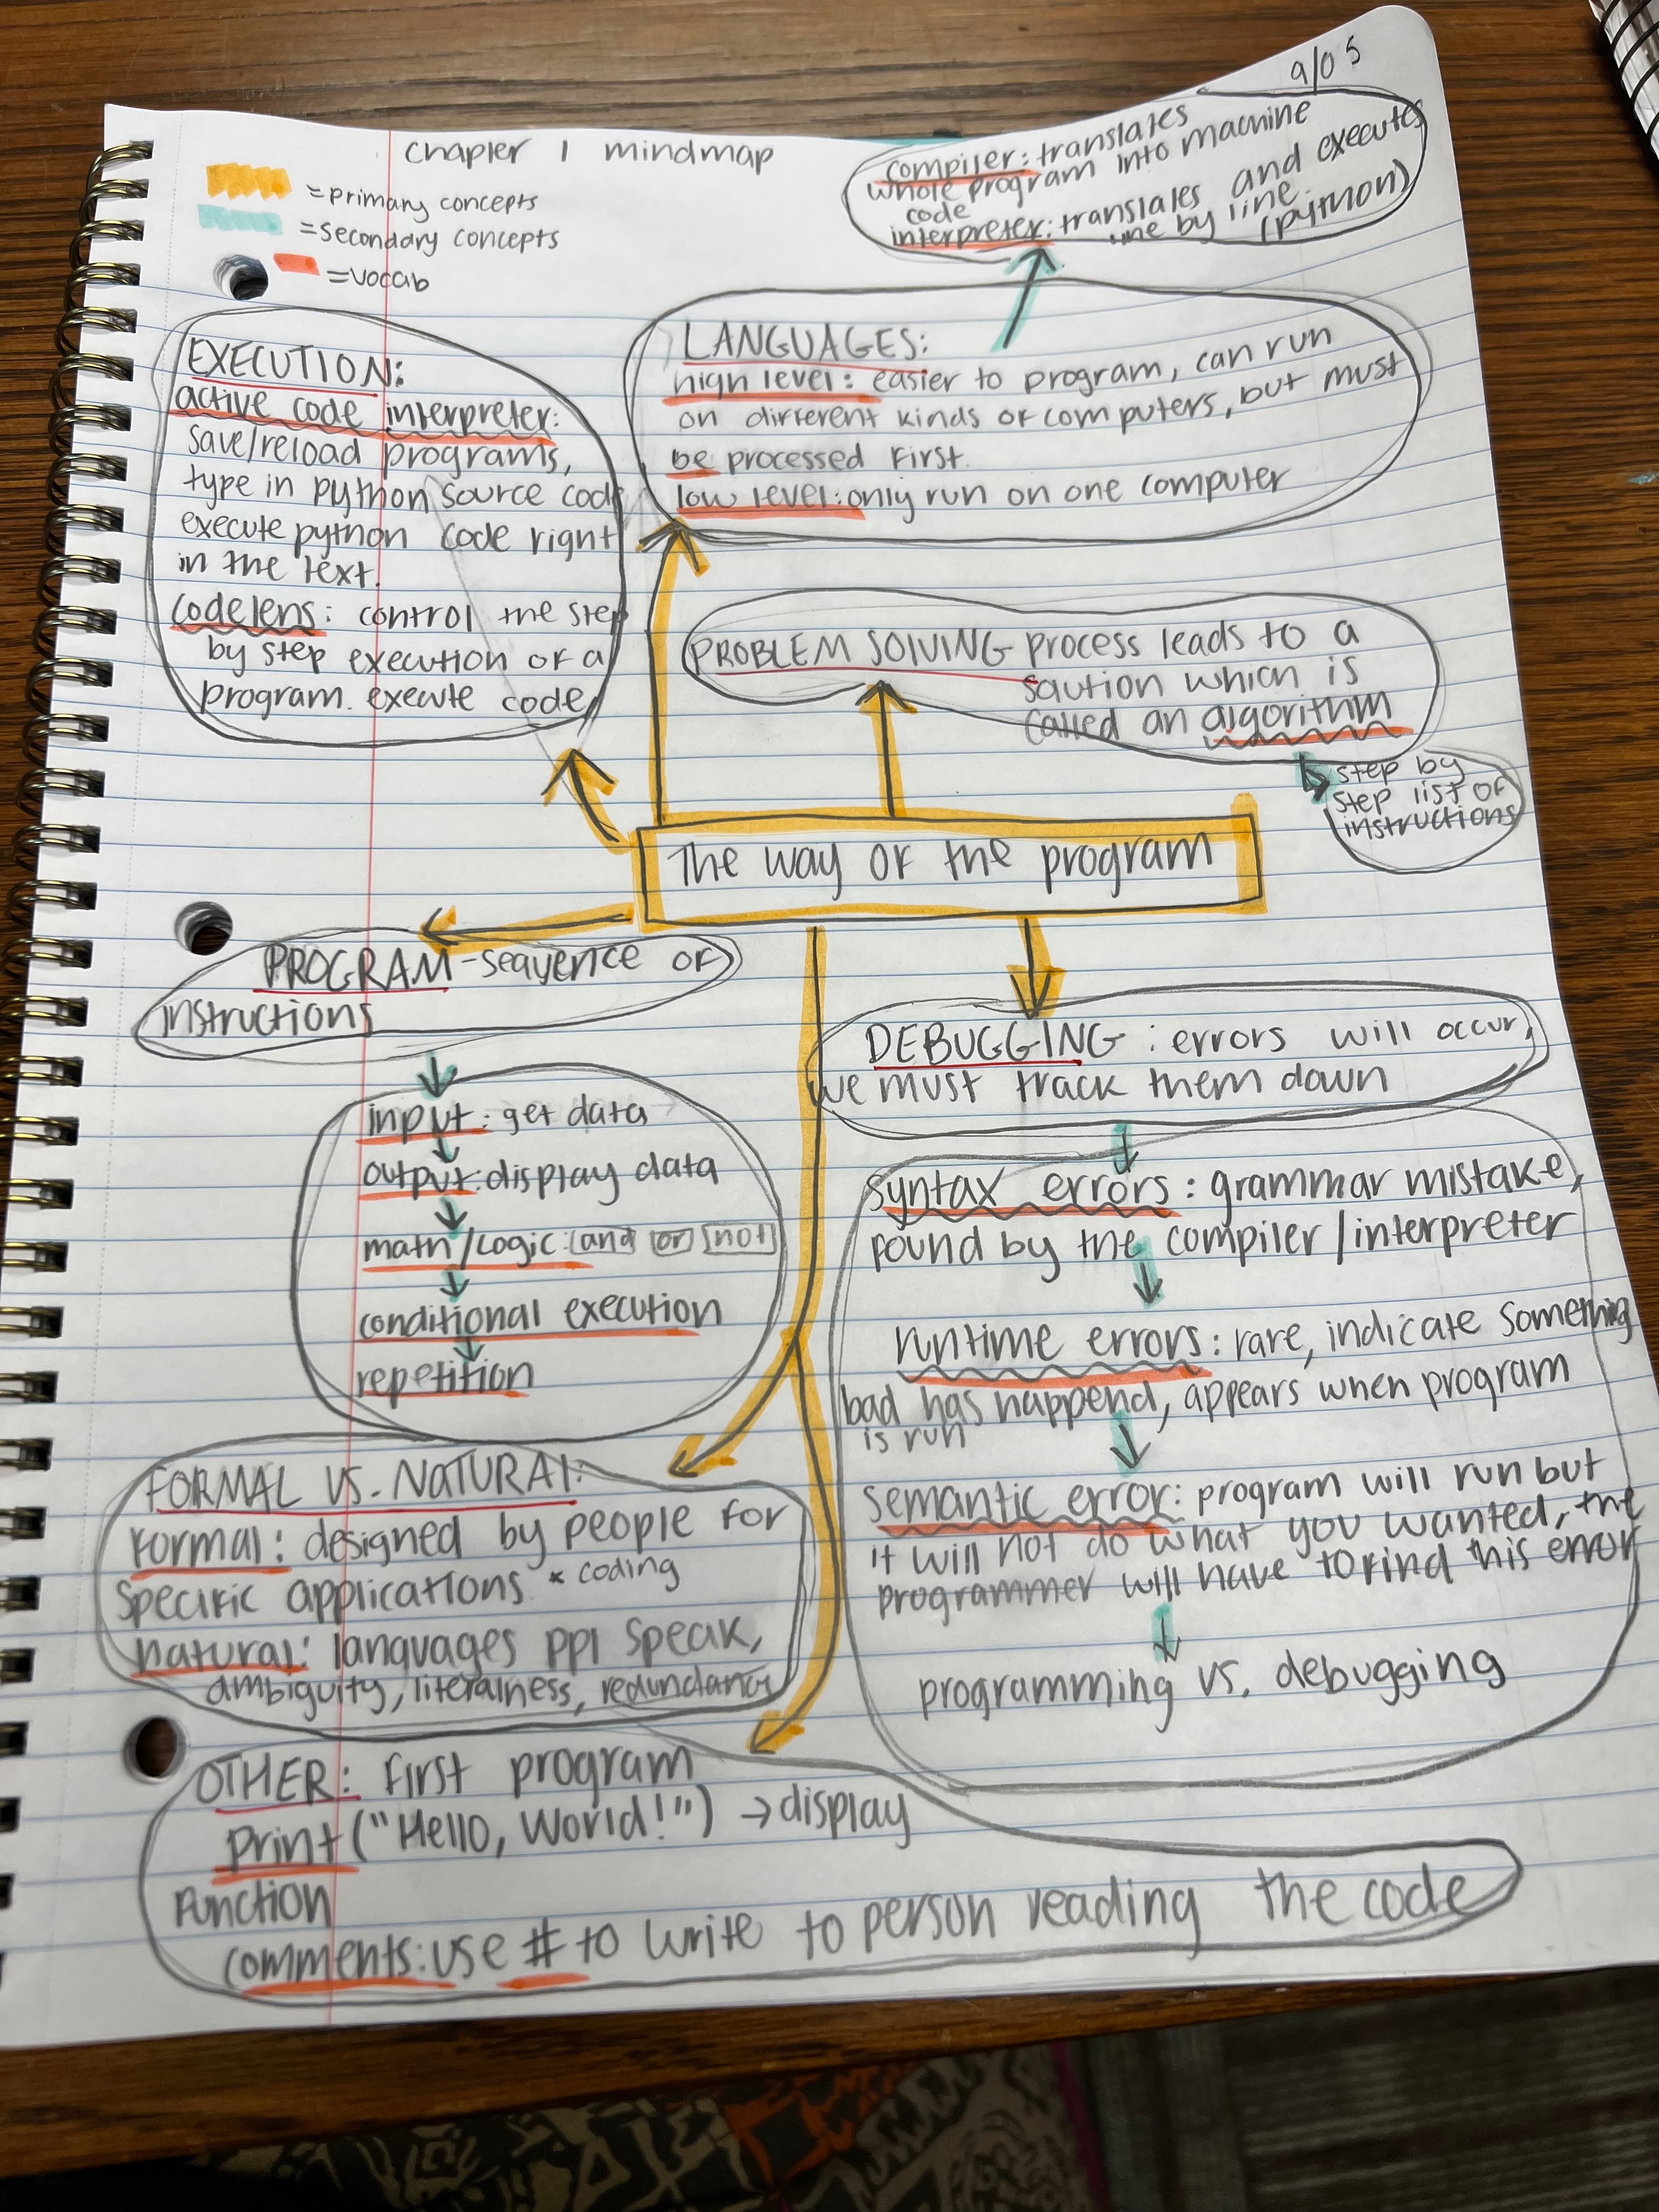 9/05
chapter 1 mindmap
=primary concepts
=secondary concepts
=vocab
compiler: translates
whole program into machine
code
interpreter: translates and executes
line by line
(python)
EXECUTION:
active code interpreter:
save/reload programs,
type in python source code
execute python code right
in the text.
codelens: control the step
by step execution of a
program. execute code
LANGUAGES:
high level: easier to program, can run
on different kinds of computers, but must
be processed first.
low level: only run on one computer
PROBLEM SOLVING process leads to a
saution which is
called an algorithm
step by
step list of
instructions
The way of the program
PROGRAM-sequence of
instructions
input: get data
output: display data
math/logic: and or not
conditional execution
repetition
DEBUGGING: errors will occur,
we must track them down
syntax errors: grammar mistake,
found by the compiler/interpreter
runtime errors: rare, indicate something
bad has happend, appears when program
is run
semantic error: program will run but
it will not do what you wanted, the
programmer will have to find this error
programming vs. debugging
FORMAL VS. NATURAL:
formal: designed by people for
specific applications * coding
natural: languages ppl speak,
ambiguity, literalness, redundancy
OTHER: first program
print("Hello, World!") → display
function
comments: use # to write to person reading the code